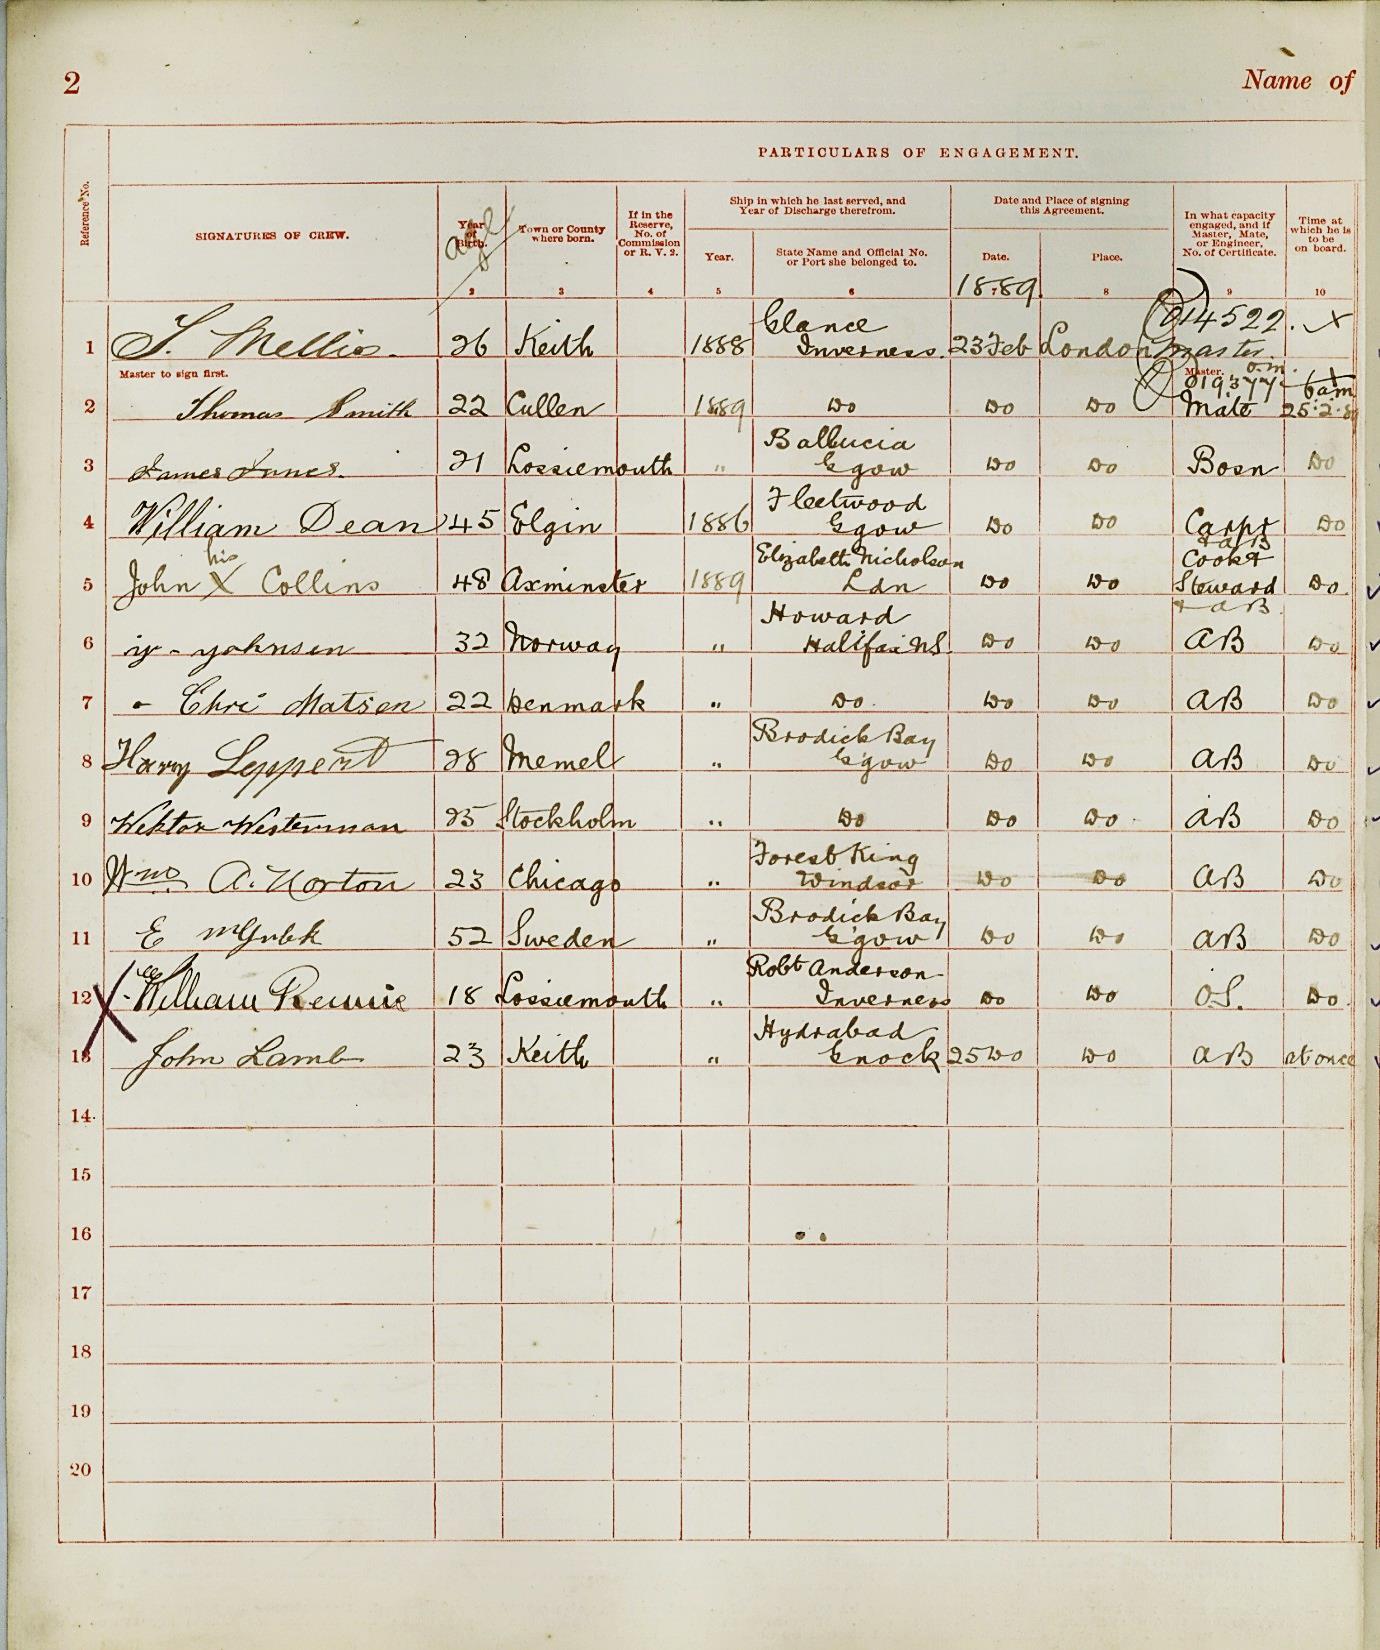 2
Name of
PARTICULARS OF ENGAGEMENT.
Reference No.
SIGNATURES OF CREW.
Year of Birth.
age
Town or County where born.
If in the Reserve, No. of Commission or R. V. 2.
Ship in which he last served, and Year of Discharge therefrom.
Year.
State Name and Official No. or Port she belonged to.
Date and Place of signing this Agreement.
Date.
Place.
In what capacity engaged, and if Master, Mate, or Engineer, No. of Certificate.
Time at which he is to be on board.
2 3 4 5 6 7 8 9 10
1889
1 J. Mellis. 26 Keith 1888 Glance Inverness. 23 Feb London 014522. Master. X
Master to sign first.
Master.
2 Thomas Smith 22 Cullen 1889 Do Do Do 019377 o.m. Mate 6am 25.2.89
3 James Innes. 21 Lossiemouth " Ggow Do Do Bosn Do
4 William Dean 45 Elgin 1886 Fleetwood Ggow Do Do Carpr & AB Do
5 John his X Collins 48 Axminster 1889 Elizabeth Nicholson Ldn Do Do Cook & Steward & AB Do.
6 32 Norway " Howard Halifax NS. Do Do AB Do
7 Chri Matsen 22 Denmark " Do. Do Do AB Do
8 Harry Leppert 28 Memel " Brodick Bay G'gow Do Do AB Do
9 Wektor Westerman 25 Stockholm " Do Do Do AB Do
10 Wm A. Norton 23 Chicago " Forest King Windsor Do Do AB Do
11 E 52 Sweden " Brodick Bay G'gow Do Do AB Do
12 X William Rennie 18 Lossiemouth " Robt Anderson Inverness Do Do O.S. Do.
13 John Lamb 23 Keith " Hydrabad Gnock 25 Do Do AB at once
14
15
16
17
18
19
20